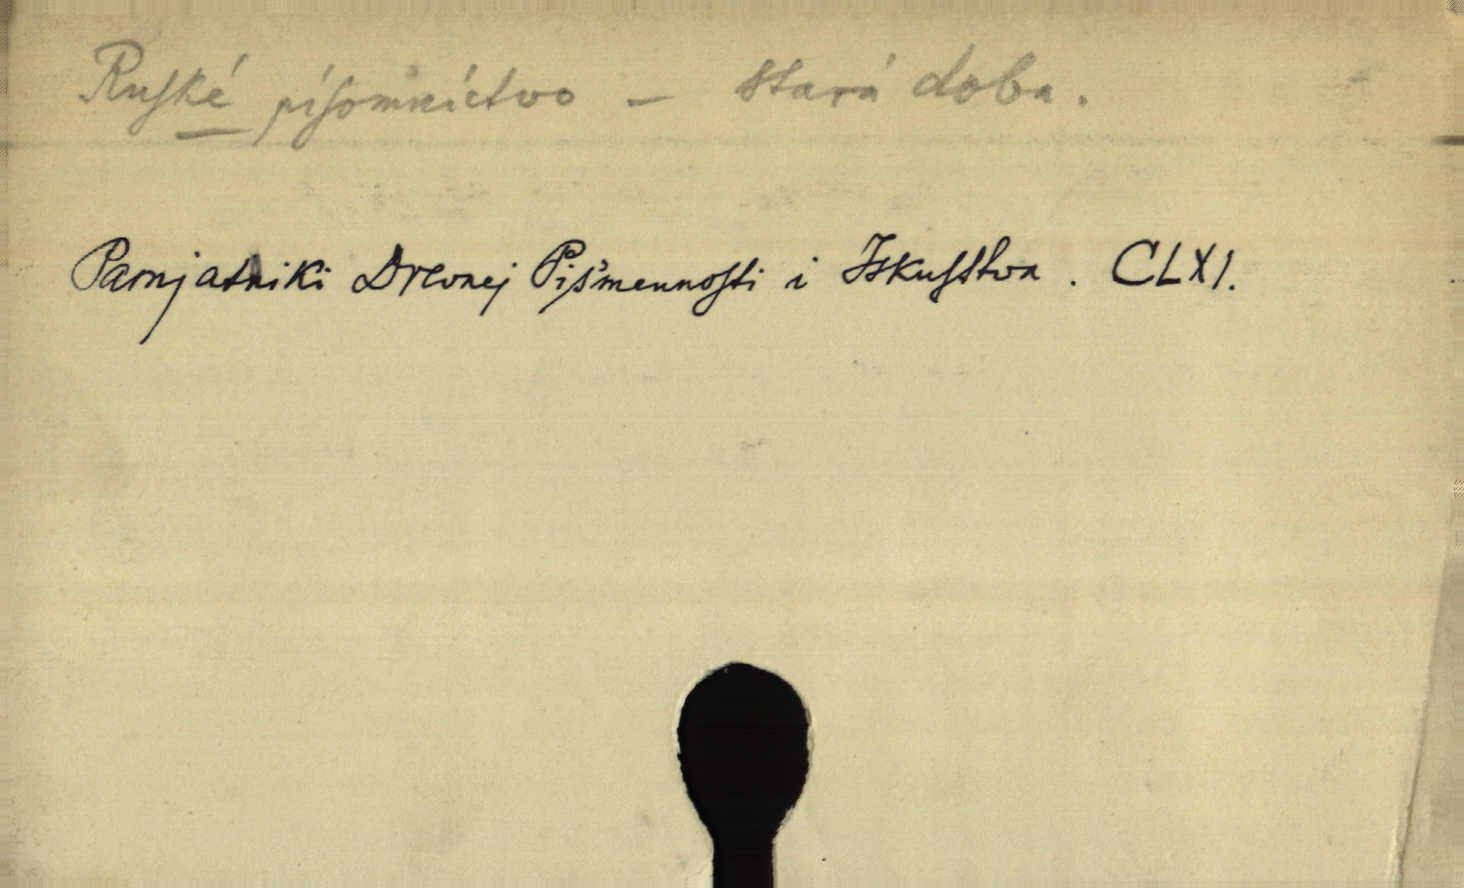 Ruské písomníctvo — stará doba.
Pamjatniki Drevnej Piśmennosti i Iskusstva. CLXI.